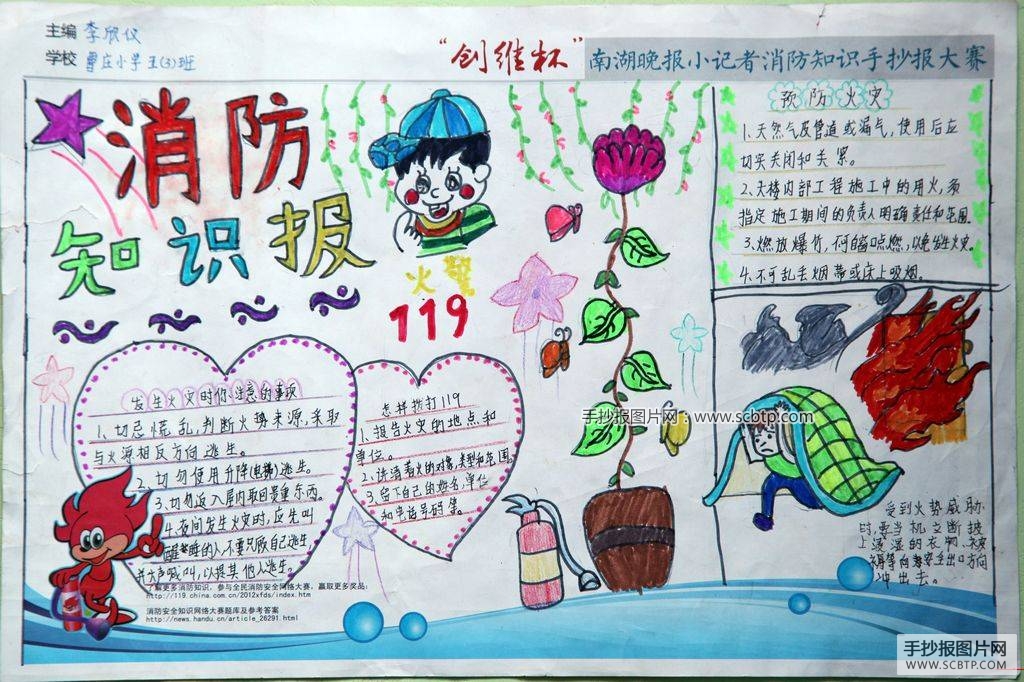 主编 李欣仪
学校 曹庄小学五(3)班
“创维杯” 南湖晚报小记者消防知识手抄报大赛
消防
知识报
火警
119
发生火灾时你注意的事项
1、切忌慌乱,判断火势来源,采取
与火源相反方向逃生。
2、切勿使用升降(电梯)逃生。
3、切勿返入屋内取回贵重东西。
4、夜间发生火灾时,应先叫
醒熟睡的人,不要只顾自己逃生
并大声喊叫,以提其他人逃生。
怎样拨打119
1、报告火灾的地点和
单位。
2、讲清着火的对象,类型和范围。
3、留下自己的姓名,单位
和电话号码等。
预防火灾
1、天然气及管道或漏气,使用后应
切实关闭和关紧。
2、大楼内部工程施工中的用火,务
指定施工期间的负责人明确责任和范围。
3、燃放爆竹,不
点燃,以免发生火灾。
4、不可乱丢烟蒂或床上吸烟。
受到火势威胁
时,要当机立断披
上浸湿的衣物、
等向安全出口方向
冲出去。
手抄报图片网:www.scbtp.com
了解更多消防知识,参与全民消防安全网络大赛,赢取更多奖品:
http://119.china.com.cn/2012xfds/index.htm
消防安全知识网络大赛题库及参考答案
http://news.handu.cn/article_26291.html
手抄报图片网
WWW.SCBTP.COM